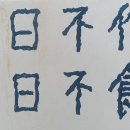 日不作
日不食